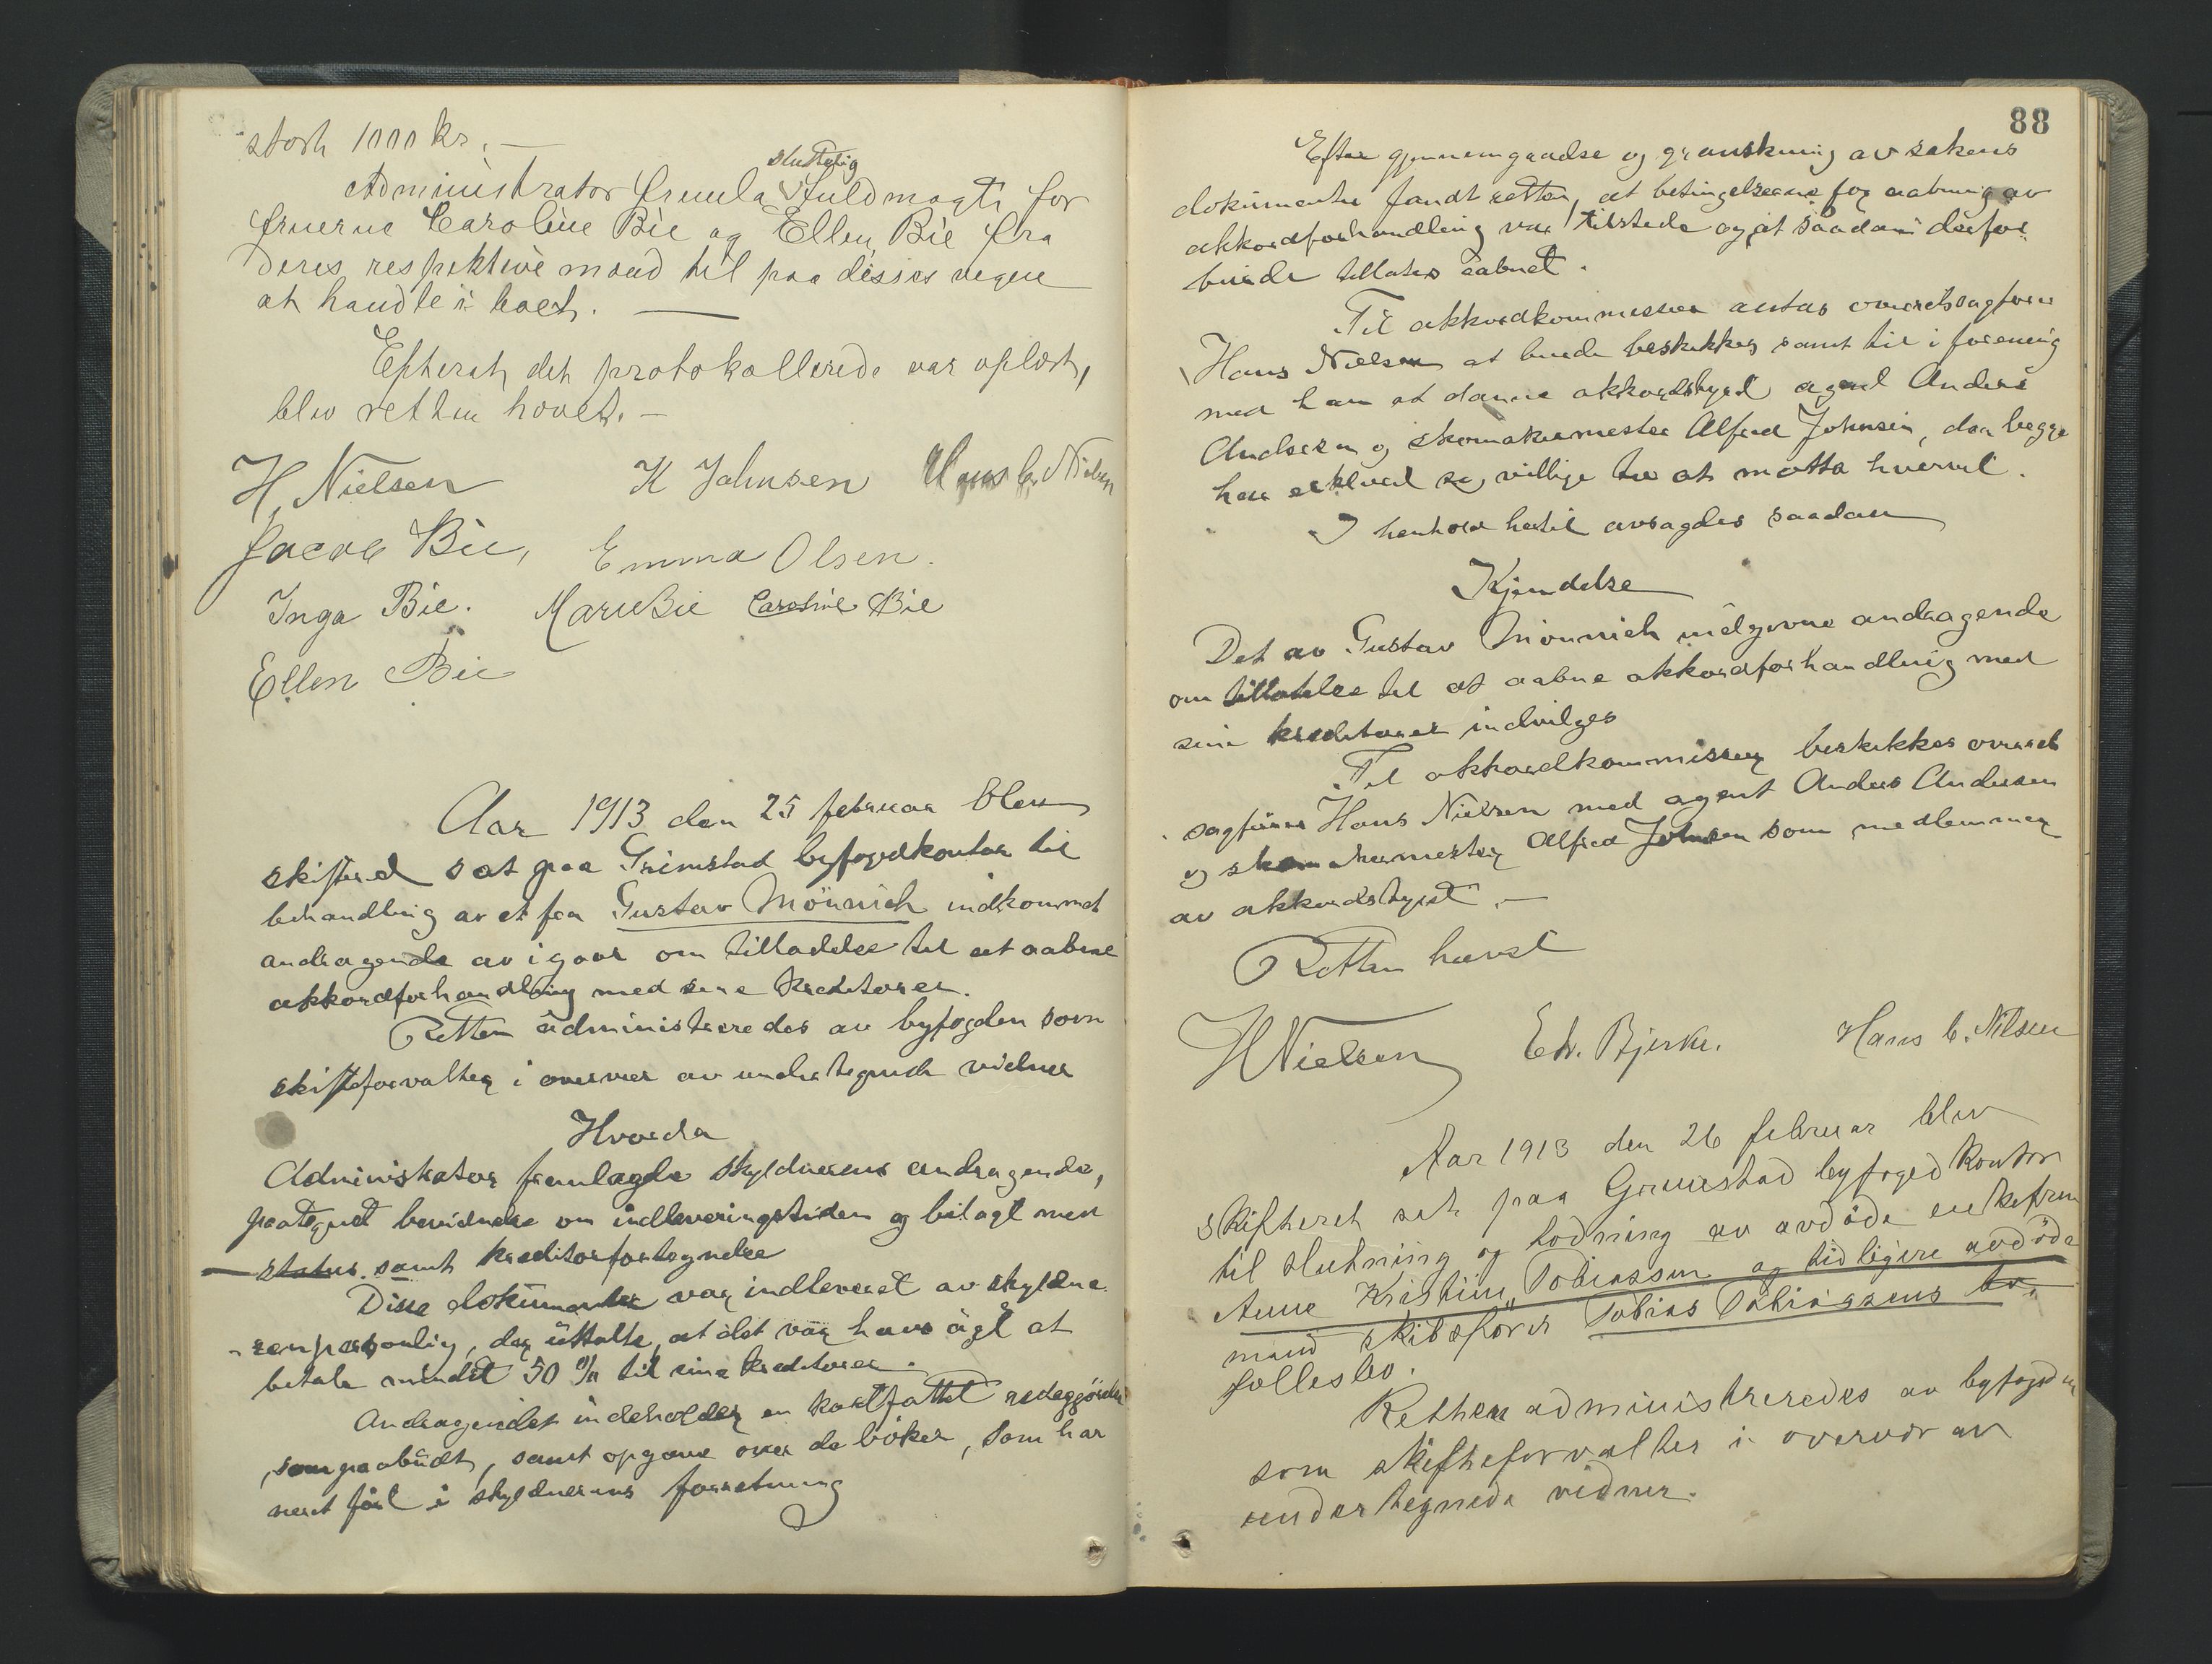 stort 1000 kr. —
sluttelig
Administrator fremla fuldmagt for
fruerne Caroline Bie og Ellen Bie fra
deres respektive mænd til paa disses vegne
at handle i boet. —
Efterat det protokollerede var oplæst,
blev retten hævet. —
H. Nielsen K Johnsen Hans C. Nilsen
Jacob Bie, Emma Olsen.
Inga Bie. Marie Bie Caroline Bie
Ellen Bie
Aar 1913 den 25 februar blev
skifteret sat paa Grimstad byfogedkontor til
behandling av et fra Gustav Mönnich indkommet
andragende av igaar om tilladelse til at aabne
akkordforhandling med sine kreditorer.
Retten administreredes av byfogden som
skifteforvalter i overvær av undertegnede vidner
Hvorda
Administrator fremlagde skyldnerens andragende,
paategnet bevidnelse om indleveringstiden og bilagt med
status samt kreditorfortegnelse
Disse dokumenter var indleveret av skyldne-
ren personlig, der uttalte, at det var hans agt at
betale mindst 50 % til sine kreditorer.
Andragendet indeholder en kortfattet redegjörelse
som paabudt, samt opgave over de böker, som har
været fört i skyldnerens forretning
88
Efter gjennemgaaelse og granskning av sakens
dokumenter fandt retten, at betingelserne for aabning av
akkordforhandling var tilstede og at saadan derfor
burde tillates aabnet.
Til akkordkommissær antas overretssagförer
Hans Nielsen at burde beskikkes samt til i forening
med ham at danne akkordstyret agent Anders
Andersen og skomakermester Alfred Johnsen, der begge
har erklæret sig villige til at motta hvervet.
I henhold hertil avsagdes saadan
Kjendelse
Det av Gustav Mönnich indgivne andragende
om tilladelse til at aabne akkordforhandling med
sine kreditorer indvilges
Til akkordkommissær beskikkes overrets
sagförer Hans Nielsen med agent Anders Andersen
og skomakermester Alfred Johnsen som medlemmer
av akkordstyret. —
Retten hævet
H Nielsen Edv. Bjerke. Hans C. Nilsen
Aar 1913 den 26 februar blev
skifteret sat paa Grimstad byfogedkontor
til slutning og lodning av avdöde enkefru
Anne Kristine Tobiassen og tidligere avdöde
mand skibsförer Tobias Tobiassens bo.
fællesbo.
Retten administreredes av byfogden
som skifteforvalter i overvær av
undertegnede vidner.